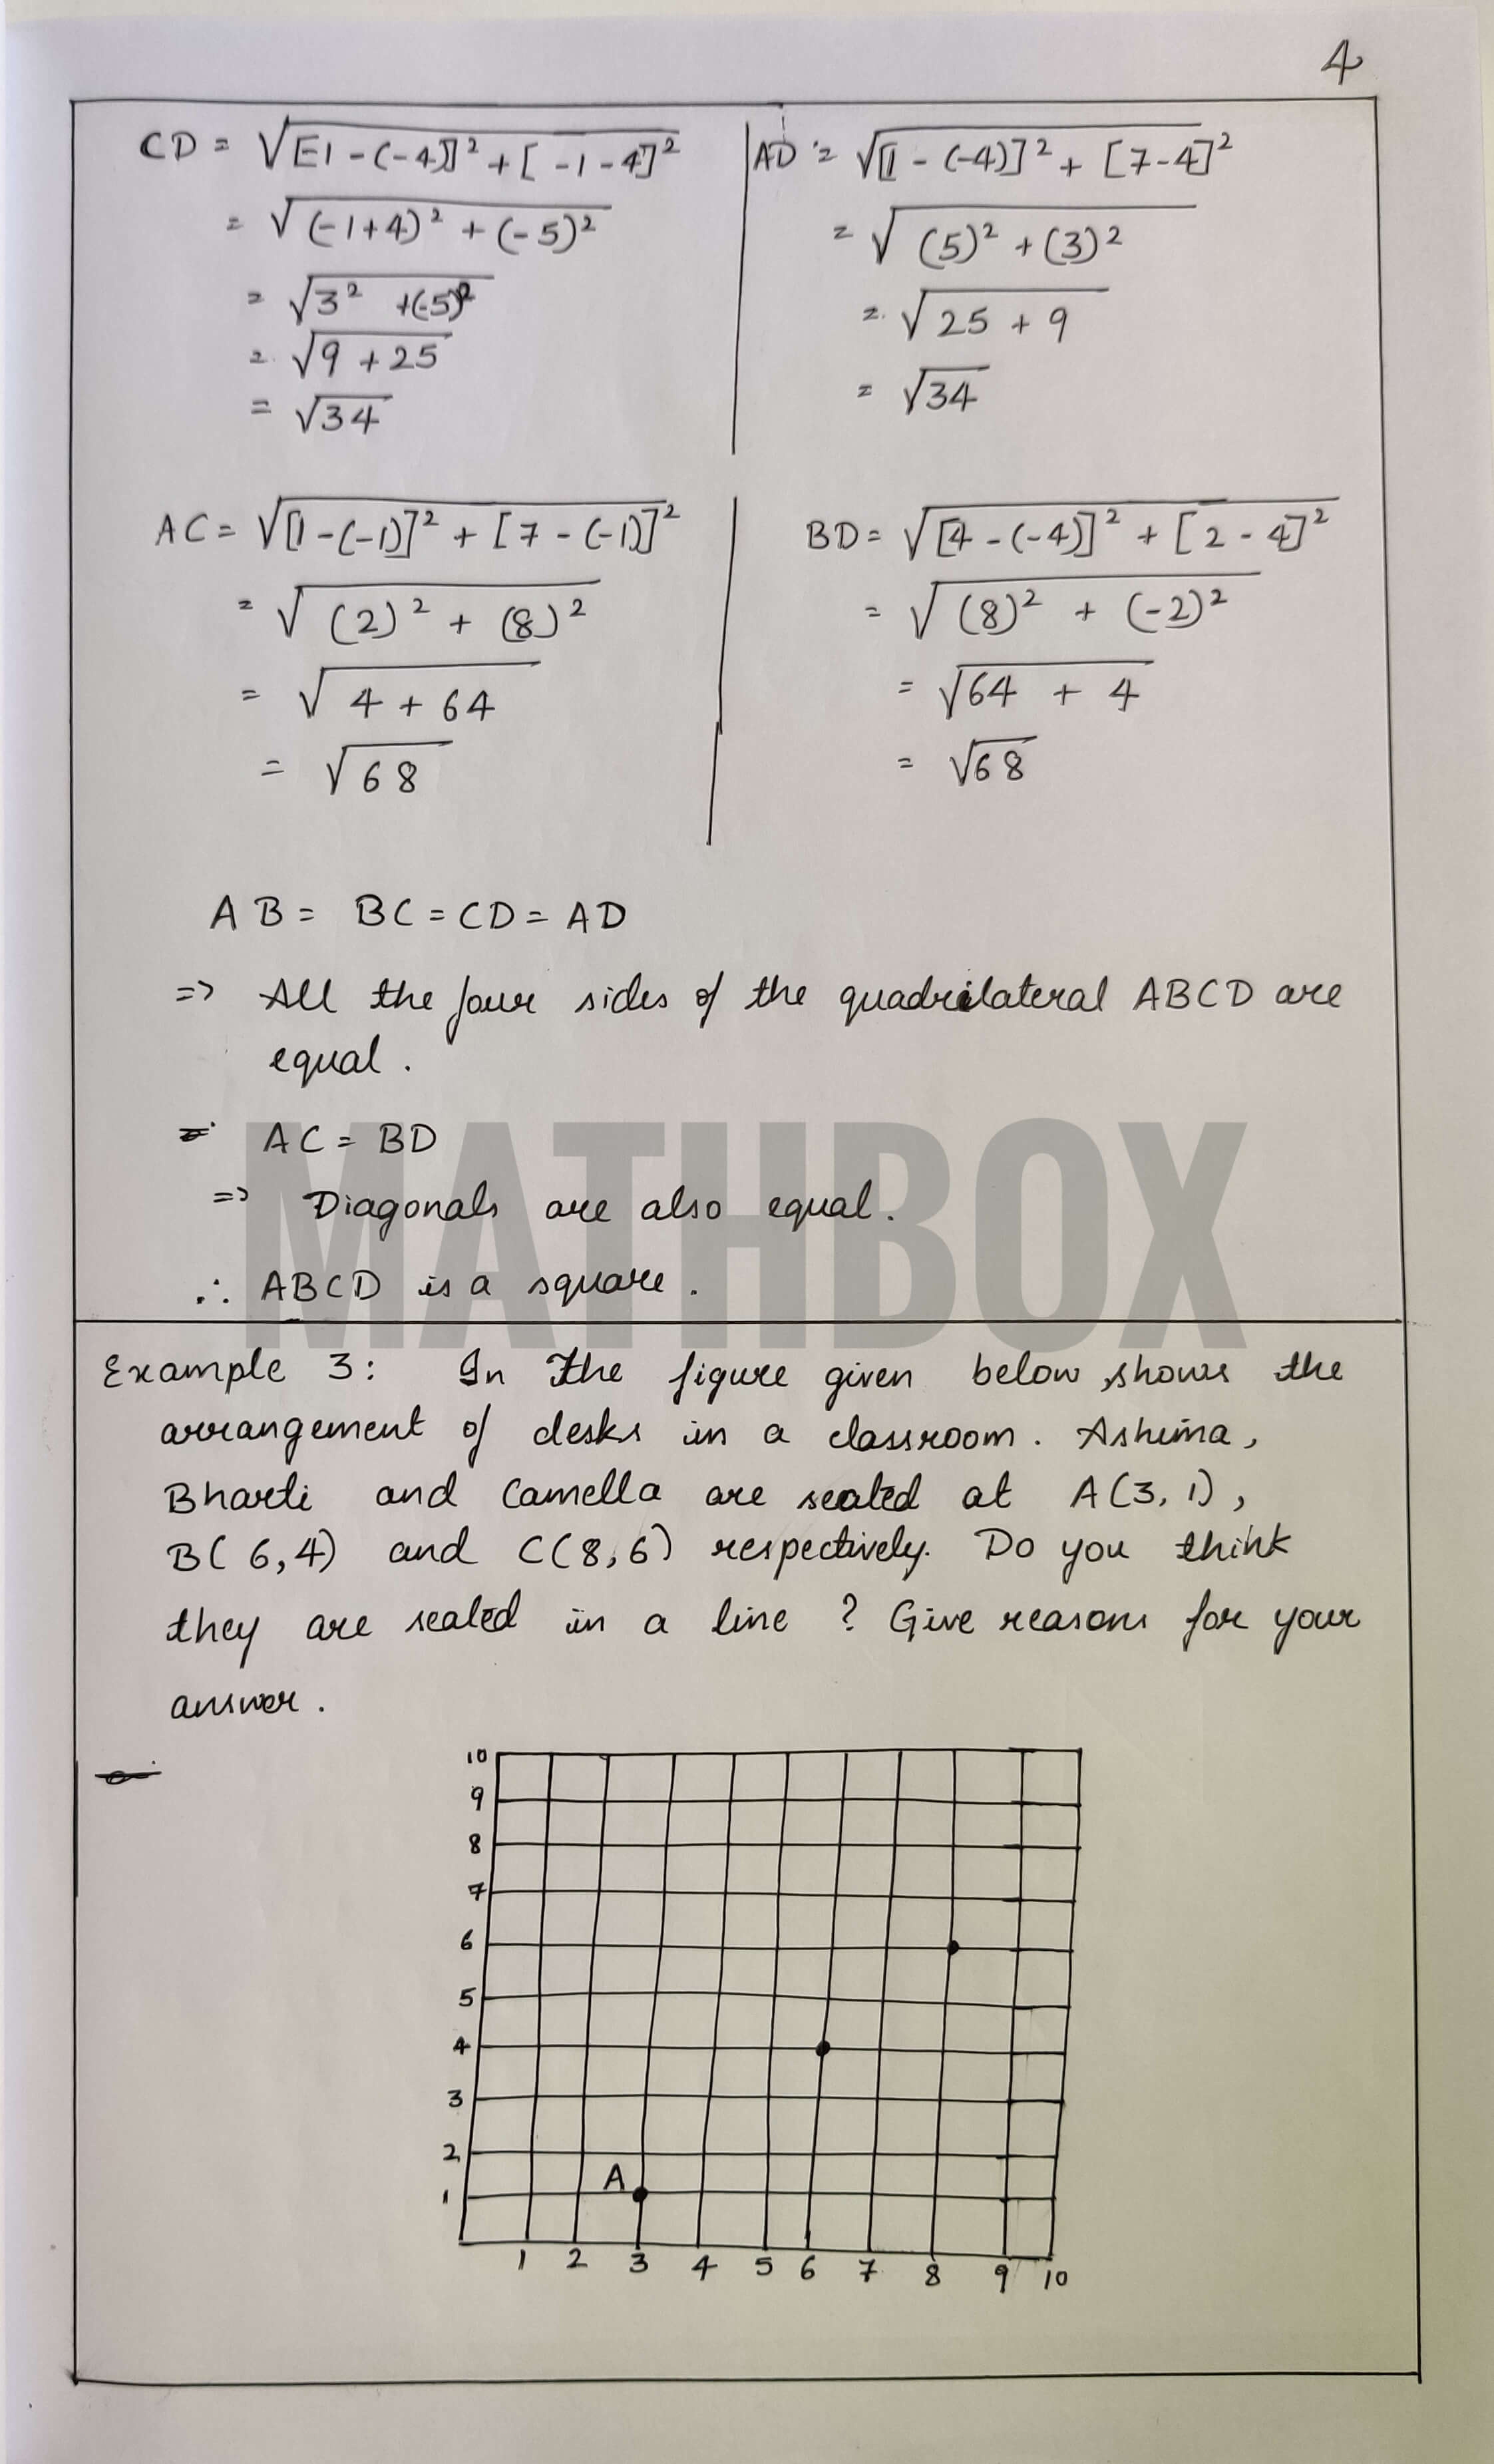 4
CD = √[-1-(-4)]² + [-1-4]²
= √(-1+4)² + (-5)²
= √3² + (-5)²
= √9 + 25
= √34
AD = √[1-(-4)]² + [7-4]²
= √(5)² + (3)²
= √25 + 9
= √34
AC = √[1-(-1)]² + [7-(-1)]²
= √(2)² + (8)²
= √4 + 64
= √68
BD = √[4-(-4)]² + [2-4]²
= √(8)² + (-2)²
= √64 + 4
= √68
AB = BC = CD = AD
=> All the four sides of the quadrilateral ABCD are
equal.
AC = BD
=> Diagonals are also equal.
∴ ABCD is a square.
MATHBOX
Example 3: In the figure given below, shows the
arrangement of desks in a classroom. Ashima,
Bharti and Camella are seated at A(3,1),
B(6,4) and C(8,6) respectively. Do you think
they are seated in a line? Give reasons for your
answer.
10
9
8
7
6
5
4
3
2
1
A
1 2 3 4 5 6 7 8 9 10